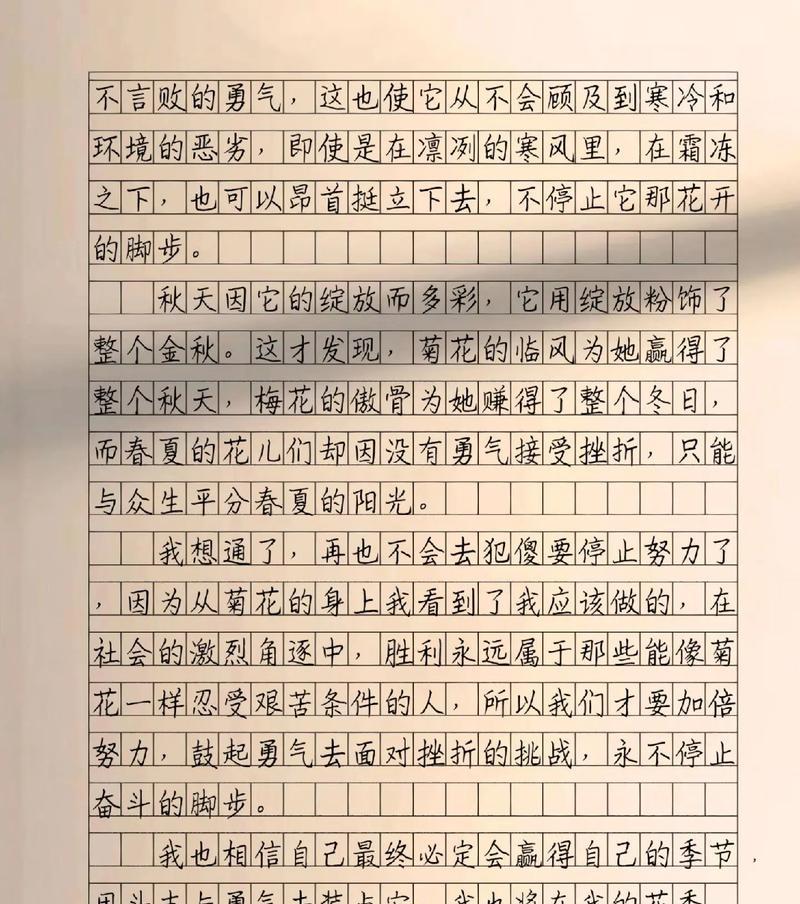 不言败的勇气，这也使它从不会顾及到寒冷和
环境的恶劣，即使是在凛冽的寒风里，在霜冻
之下，也可以昂首挺立下去，不停止它那花开
的脚步。
秋天因它的绽放而多彩，它用绽放粉饰了
整个金秋。这才发现，菊花的临风为她赢得了
整个秋天，梅花的傲骨为她赚得了整个冬日，
而春夏的花儿们却因没有勇气接受挫折，只能
与众生平分春夏的阳光。
我想通了，再也不会去犯傻要停止努力了
，因为从菊花的身上我看到了我应该做的，在
社会的激烈角逐中，胜利永远属于那些能像菊
花一样忍受艰苦条件的人，所以我们才要加倍
努力，鼓起勇气去面对挫折的挑战，永不停止
奋斗的脚步。
我也相信自己最终必定会赢得自己的季节，